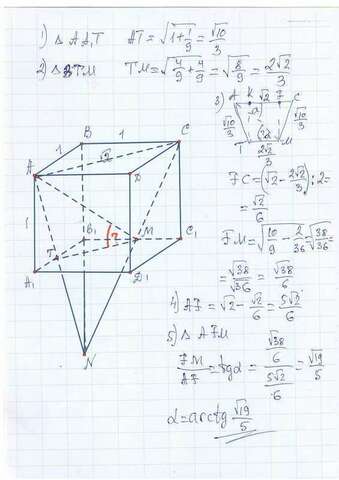 1) △ AA₁T   AT = √(1 + 1/9) = √10/3
2) △ BTM   TM = √(4/9 + 4/9) = √(8/9) = 2√2/3
3)
A K √2 F C
√10/3   α   √10/3
T   M
2√2/3
FC = (√2 − 2√2/3) : 2 =
= √2/6
FM = √(10/9 − 2/36) = √38/√36 =
= √38/√36 = √38/6
4) AF = √2 − √2/6 = 5√2/6
5) △ AFM
FM/AF = tgα = (√38/6)/(5√2/6) = √19/5
α = arctg √19/5
B 1 C
1 √2
A D
1
B₁ M C₁
T ?
A₁ D₁
N